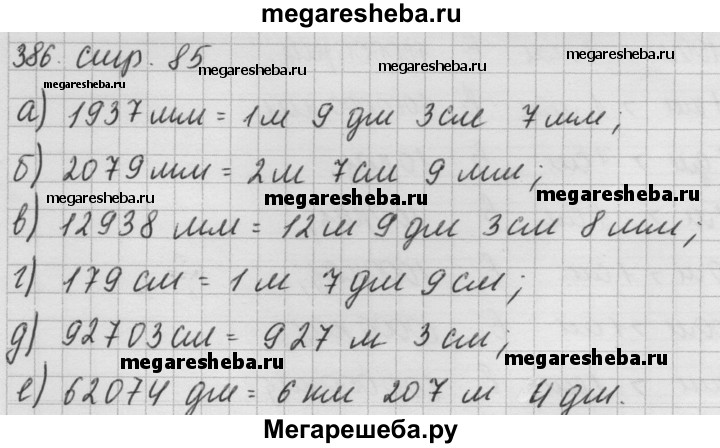 megaresheba.ru
386. стр. 85
megaresheba.ru
megaresheba.ru
megaresheba.ru
а) 1937 мм = 1 м 9 дм 3 см 7 мм;
б) 2079 мм = 2 м 7 см 9 мм;
megaresheba.ru
megaresheba.ru
megaresheba.ru
в) 12938 мм = 12 м 9 дм 3 см 8 мм;
г) 179 см = 1 м 7 дм 9 см;
д) 92703 см = 927 м 3 см;
megaresheba.ru
megaresheba.ru
е) 62074 дм = 6 км 207 м 4 дм.
Мегарешеба.ру